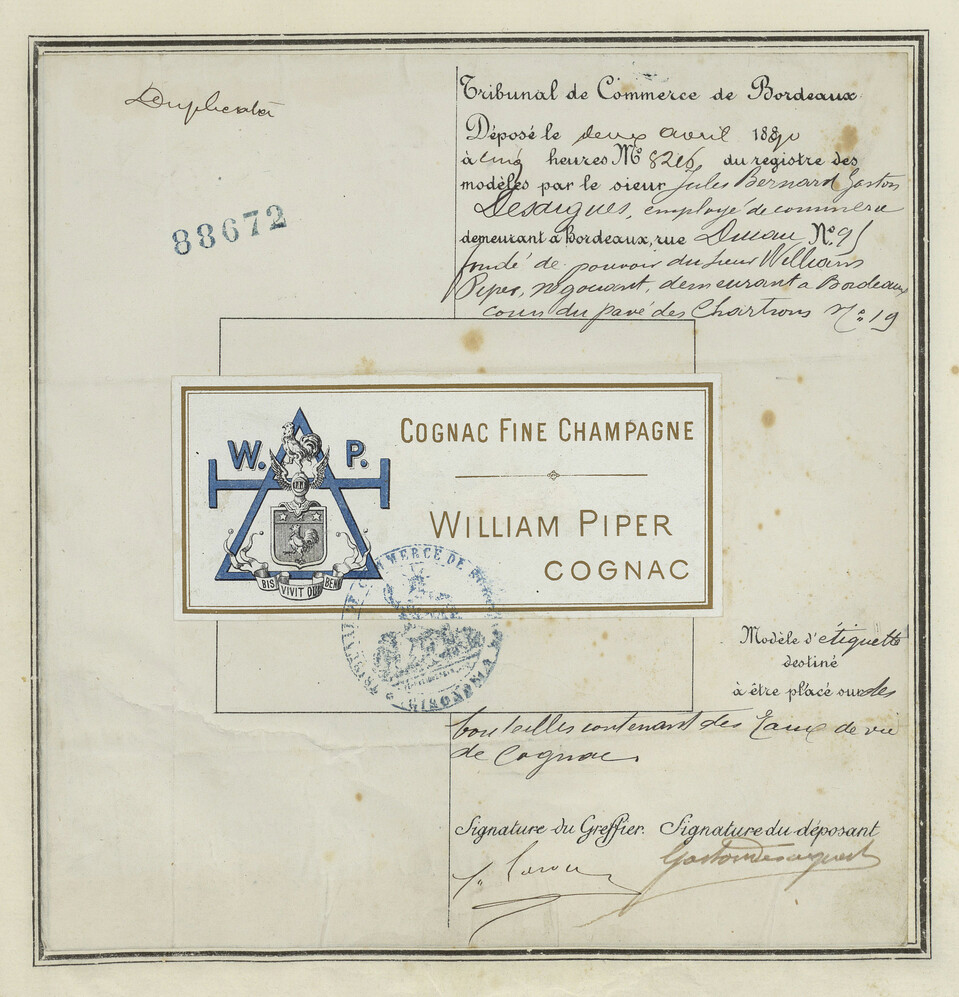 Duplicata
88672
Tribunal de Commerce de Bordeaux
Déposé le deux avril 1880
à cinq heures No 8206 du registre des
modèles par le sieur Jules Bernard Gaston
Desaigues, employé de commerce
demeurant à Bordeaux, rue No. 91
fondé de pouvoir du sieur William
Piper, négociant, demeurant a Bordeaux
cours du pavé des Chartrons No 19
W. P.
BIS VIVIT QUI BENE
COGNAC FINE CHAMPAGNE
WILLIAM PIPER
COGNAC
TRIBUNAL DE COMMERCE DE BORDEAUX
GIRONDE
Modèle d'étiquette
destiné
à être placé sur des
bouteilles contenant des Eaux de vie
de Cognac.
Signature du Greffier. Signature du déposant